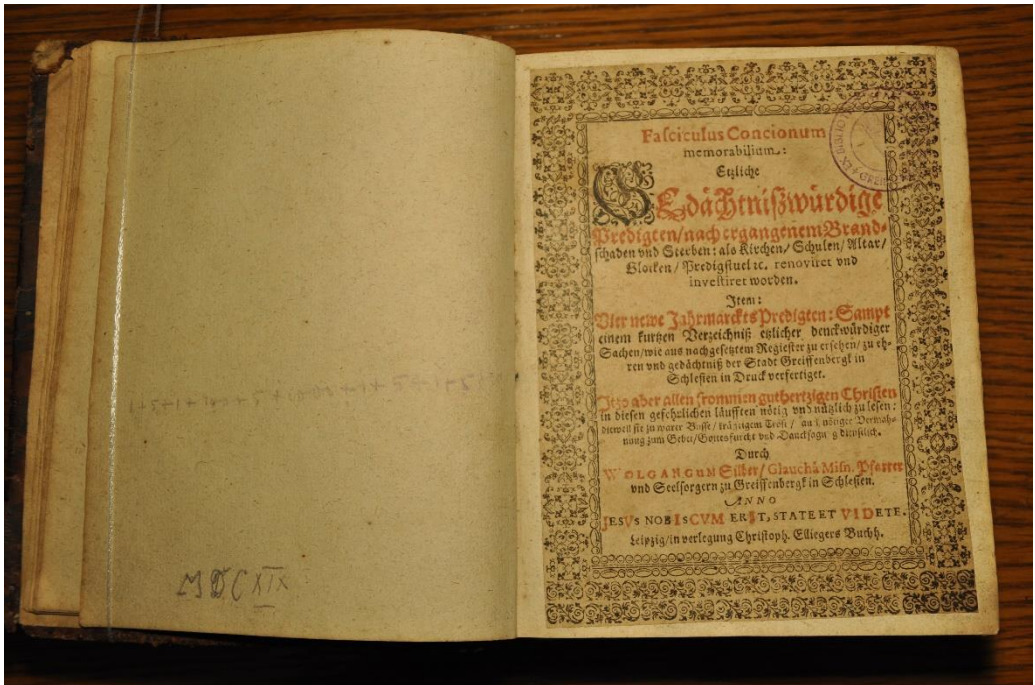 MDCXIX
Fasciculus Concionum
memorabilium:
Etzliche
Gedächtnißwürdige
Predigten/nach ergangenem Brand-
schaden vnd Sterben: als Kirchen/ Schulen/ Altar/
Glocken/ Predigstuel ꝛc. renoviret vnd
investiret worden.
Item:
Vier newe Jahrmarckts Predigten: Sampt
einem kurtzen Verzeichniß etzlicher denckwürdiger
Sachen/wie aus nachgesetztem Register zu ersehen/ zu eh-
ren vnd gedächtniß der Stadt Greiffenbergk in
Schlesien in Druck verfertiget.
Itzo aber allen frommen guthertzigen Christen
in diesen gefehrlichen läufften nötig vnd nützlich zu lesen:
dieweil sie zu warer Busse/ kräfftigem Trost/ auch nötiger Vermah-
nung zum Gebet/Gottesfurcht vnd Dancksagung dienstlich.
Durch
WOLGANGUM Silber/ Glauchâ Misn. Pfarrer
vnd Seelsorgern zu Greiffenbergk in Schlesien.
ANNO
JESVs NOBIsCVM ERIT, STATE ET VIDETE.
Leipzig/in verlegung Christoph. Elligers Buchh.
EX BIBLIO